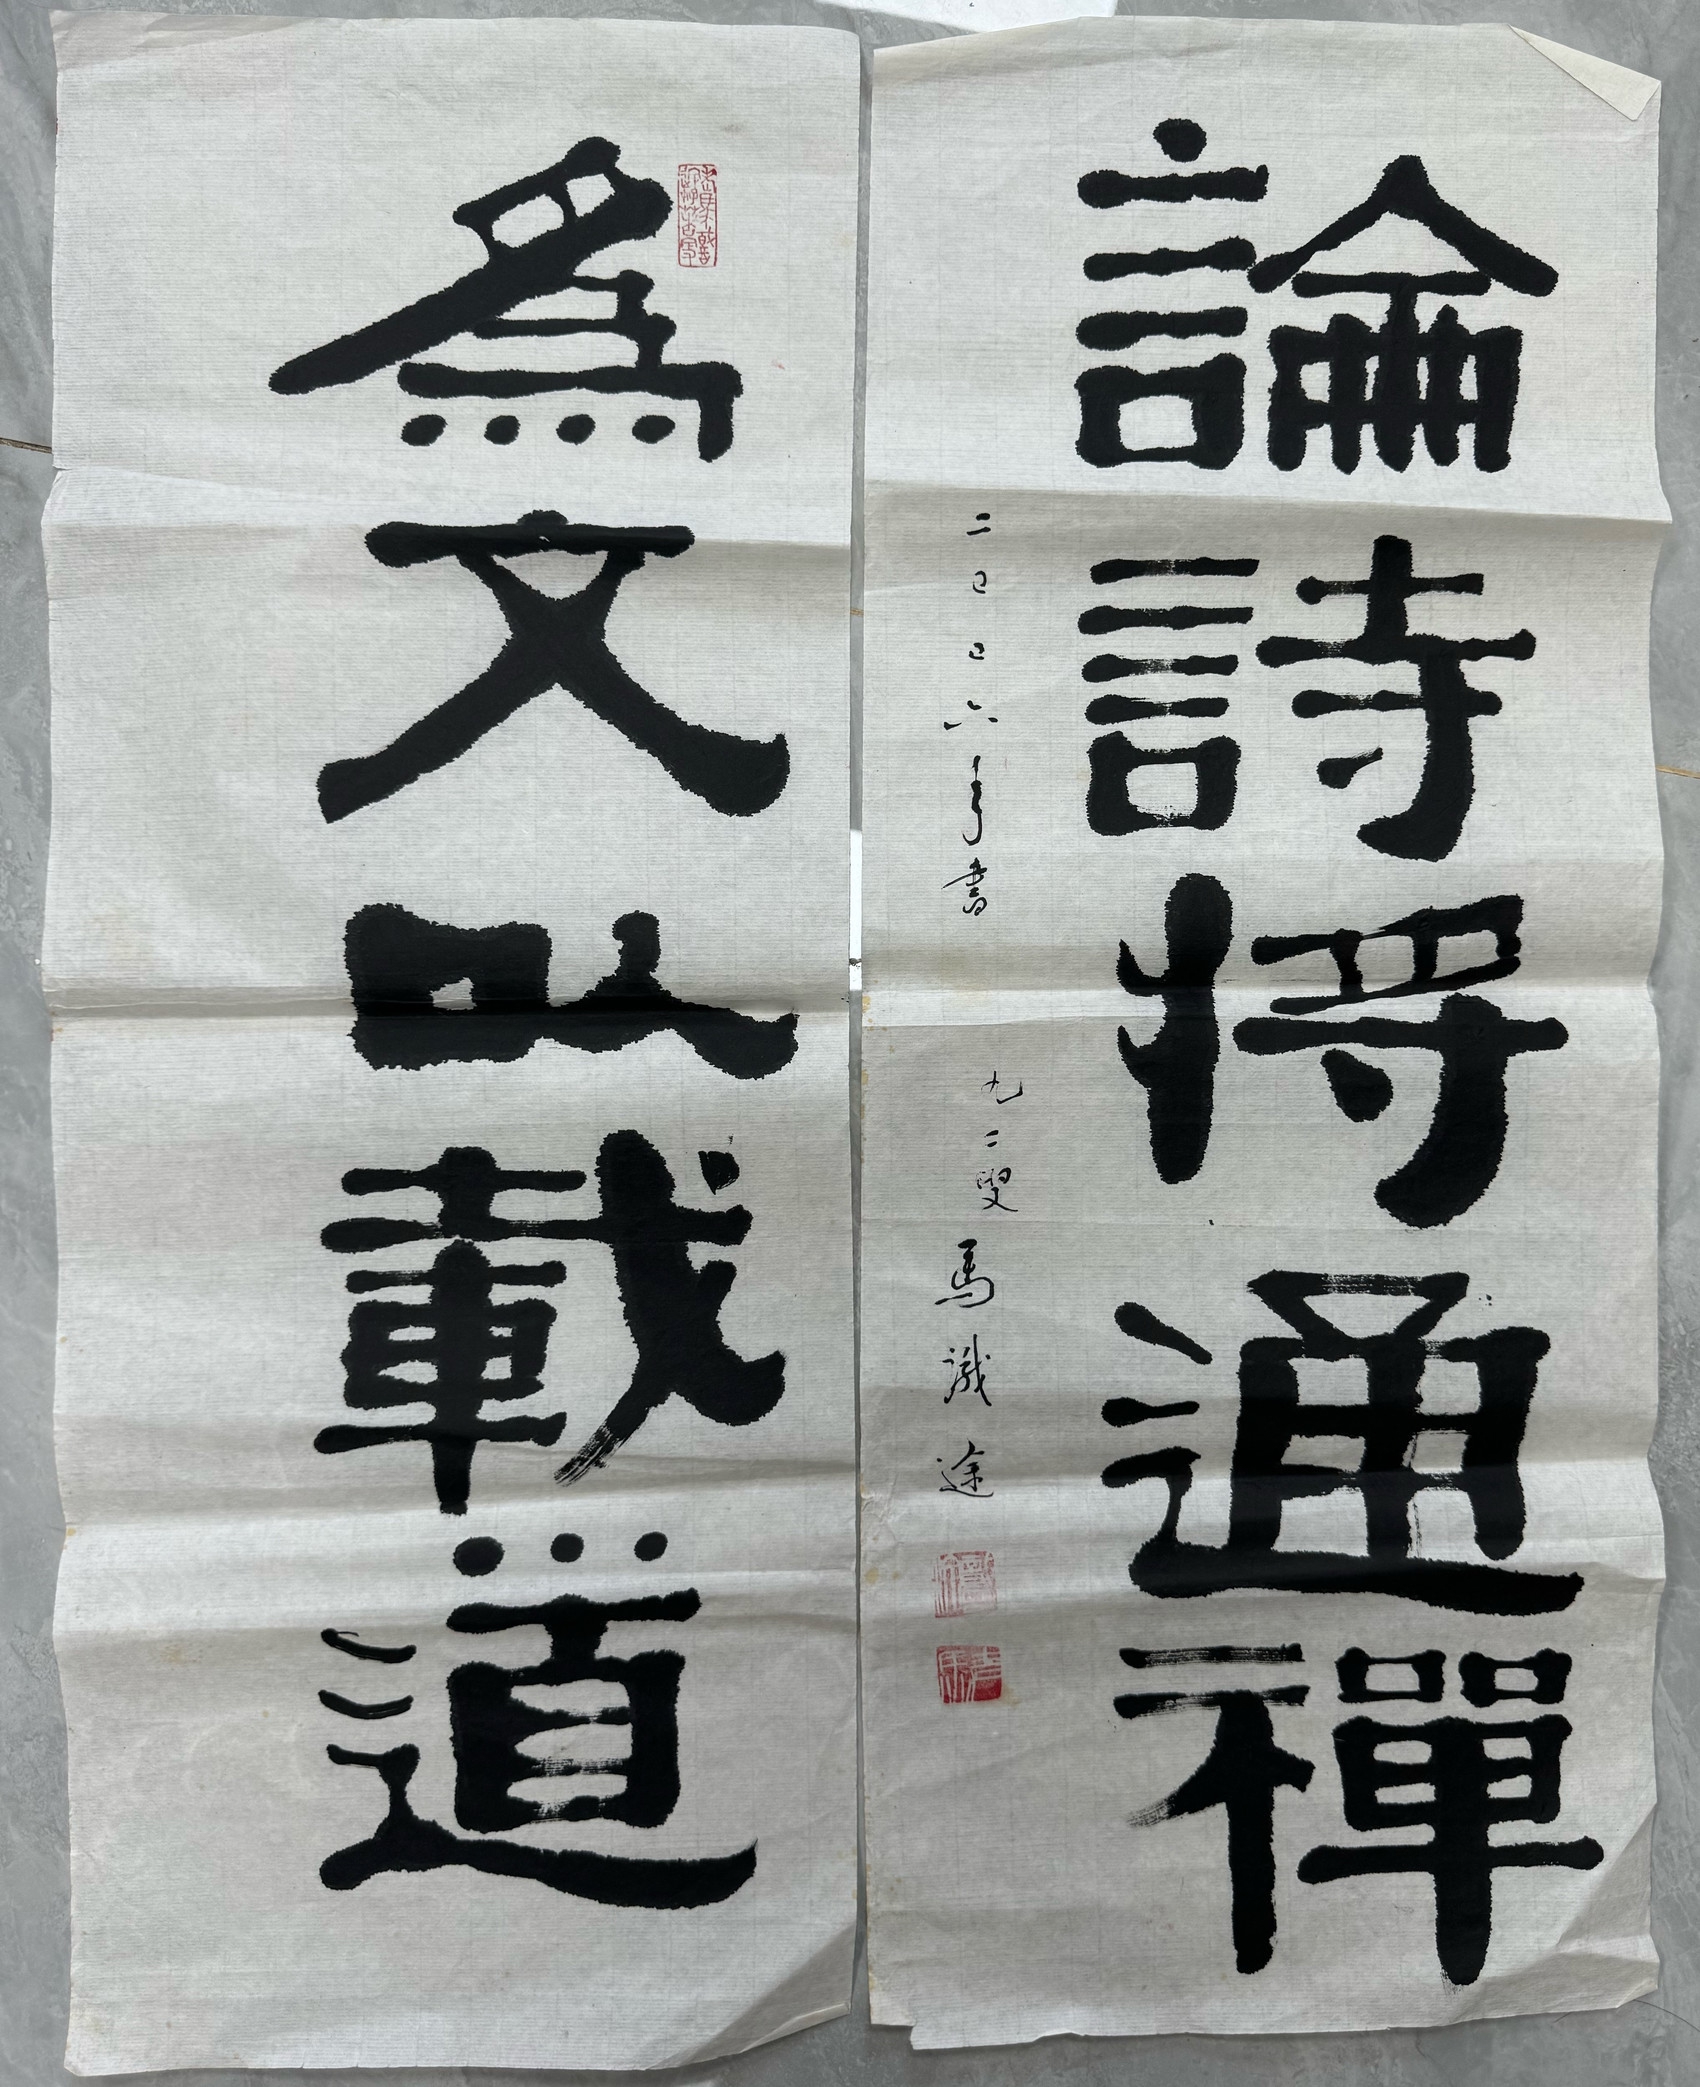 為文以載道
論詩將通禪
二〇〇六年書
九二叟馬識途